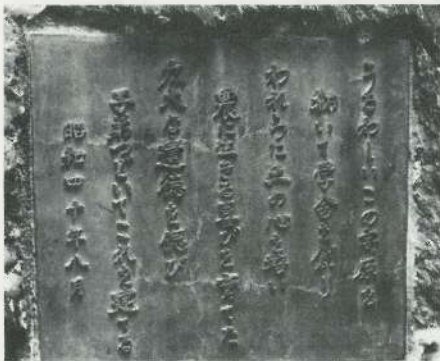 うるわしいこの高原を
拓いて学舎を創り
われらに土の心を培い
農に生きる喜びと育てた
名人の遺徳を偲び
子弟つどいてこれを建てる
昭和四十年八月